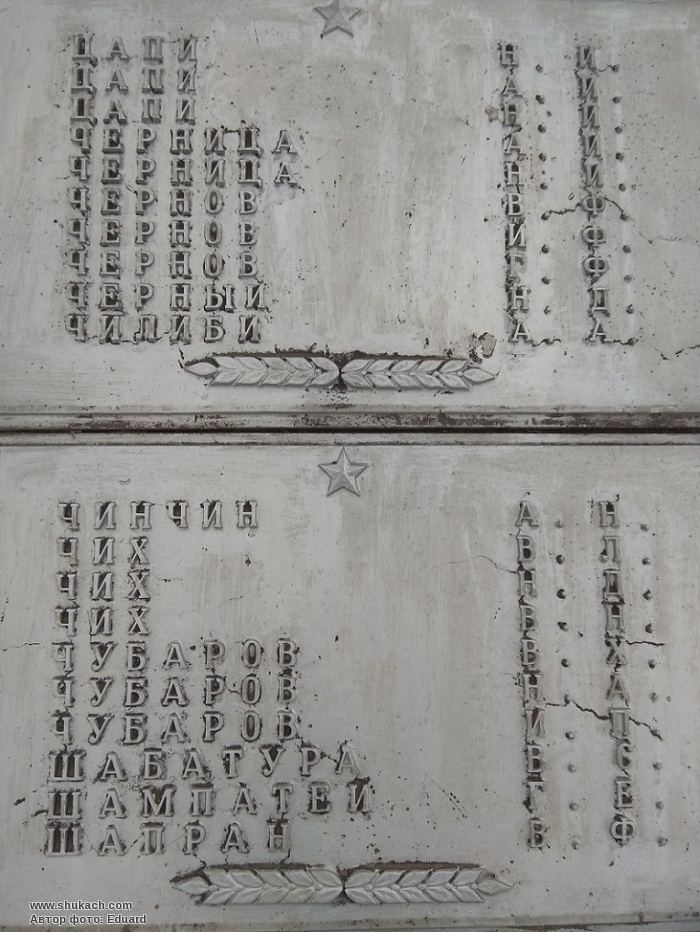 ЦАПИ Н. И.
ЦАПИ А. И.
ЦАПИ Н. И.
ЧЕРНИЦА А. И.
ЧЕРНИЦА Н. И.
ЧЕРНОВ В. Ф.
ЧЕРНОВ И. Ф.
ЧЕРНОВ Г. Ф.
ЧЕРНЫЙ Н. Д.
ЧИЛИБИ А. А.
ЧИНЧИН А. Н.
ЧИХ В. Л.
ЧИХ Н. Д.
ЧИХ В. Н.
ЧУБАРОВ В. Х.
ЧУБАРОВ Н. А.
ЧУБАРОВ И. П.
ШАБАТУРА В. С.
ШАМПАТЕЙ Г. Е.
ШАПРАН В. Ф.
www.shukach.com
Автор фото: Eduard